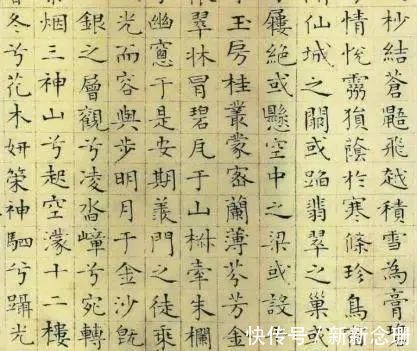 杪結蒼鼯飛越積雪為膏
情悅霧蔭於寒條珍鳥
仙城之關或蹈翡翠之巢或
屨絕或懸空中之梁或設
玉房桂叢蒙密蘭薄芬芳金
翠牀冒碧瓦于山椒牽朱欄
幽窻于是安期羨門之徒乘
光而容與步明月于金沙既
銀之層觀兮凌嶂兮宛轉
烟三神山兮起空濛十二樓
冬兮花木妍策神駟兮躡光
快传号/新新念珊